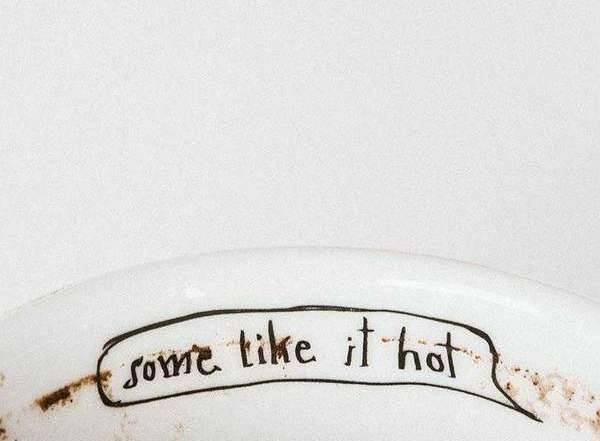 some like it hot